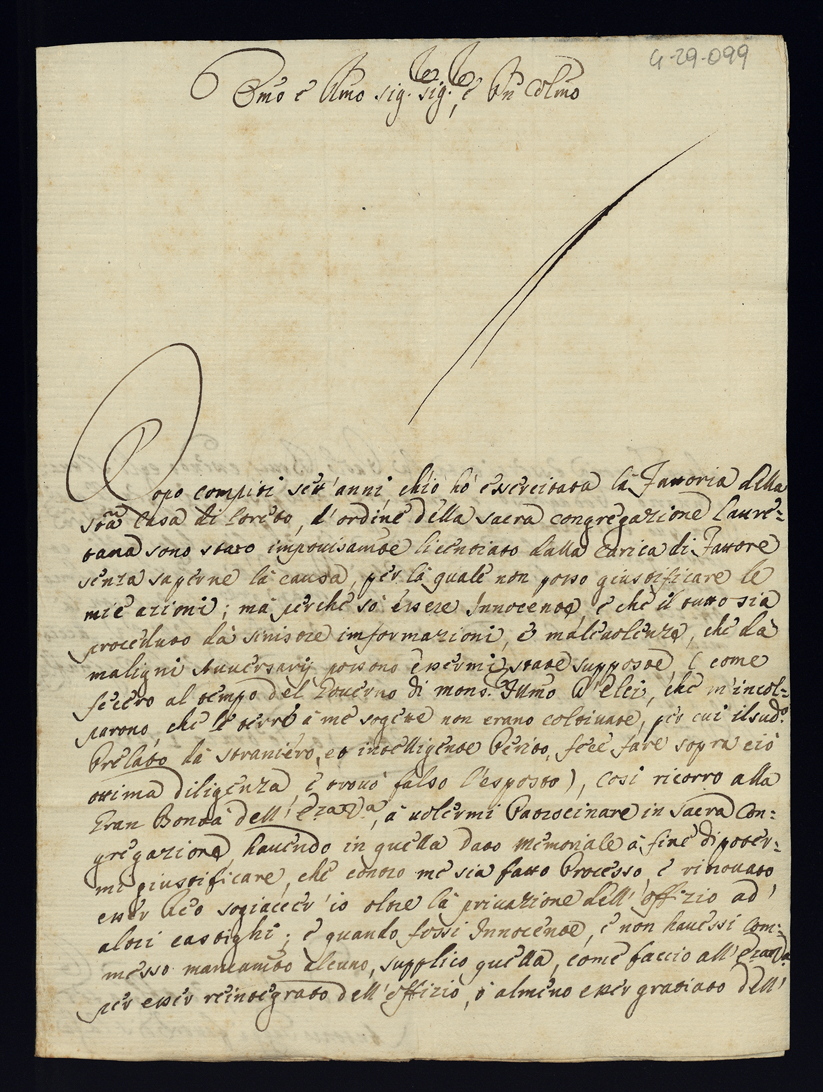 G-29-099
Emo e Rmo sig. sig., e Pñ Colmo
Dopo compiti sett'anni, ch'io hò essercitata la Fattoria della
sta Casa di Loreto, d'ordine della sacra Congregazione Laure=
tana sono stato improuisamte licentiato dalla Carica di Fattore
senza saperne la causa, per la quale non posso giustificare le
mie azioni; mà perche sò essere Innocente, e che il tutto sia
proceduto dà sinistre informazioni, e maleuolenze, che dà
maligni Auuersarij possono essermi state supposte (come
fecero al tempo del Gouerno di mons. Illmo d'Elci, che m'incol=
parono che le terre à me sogette non erano coltiuate, per cui il sud.o
Prelato dà straniero, et intelligente Perito, fece fare sopra ciò
ottima diligenza, e trouò falso l'esposto), così ricorro alla
Gran Bontà dell'Eza Va, à uolermi Patrocinare in Sacra Con=
gregazione, hauendo in quella dato memoriale à fine di poter=
mi giustificare, che contro me sia fatto Processo, e ritrouato
esser reo sogiaccer'io oltre la priuazione dell'offizio ad'
altri castighi; e quando fossi Innocente, e non hauessi Com=
messo mancamto alcuno, supplico quella, come faccio all'Eza Va
per esser reintegrato dell'offizio, ò almeno esser gratiato dell'